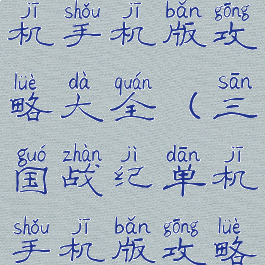 jī shǒu jī bǎn gōng
机手机版攻
lüè dà quán sān
略大全（三
guó zhàn jì dān jī
国战纪单机
shǒu jī bǎn gōng lüè
手机版攻略